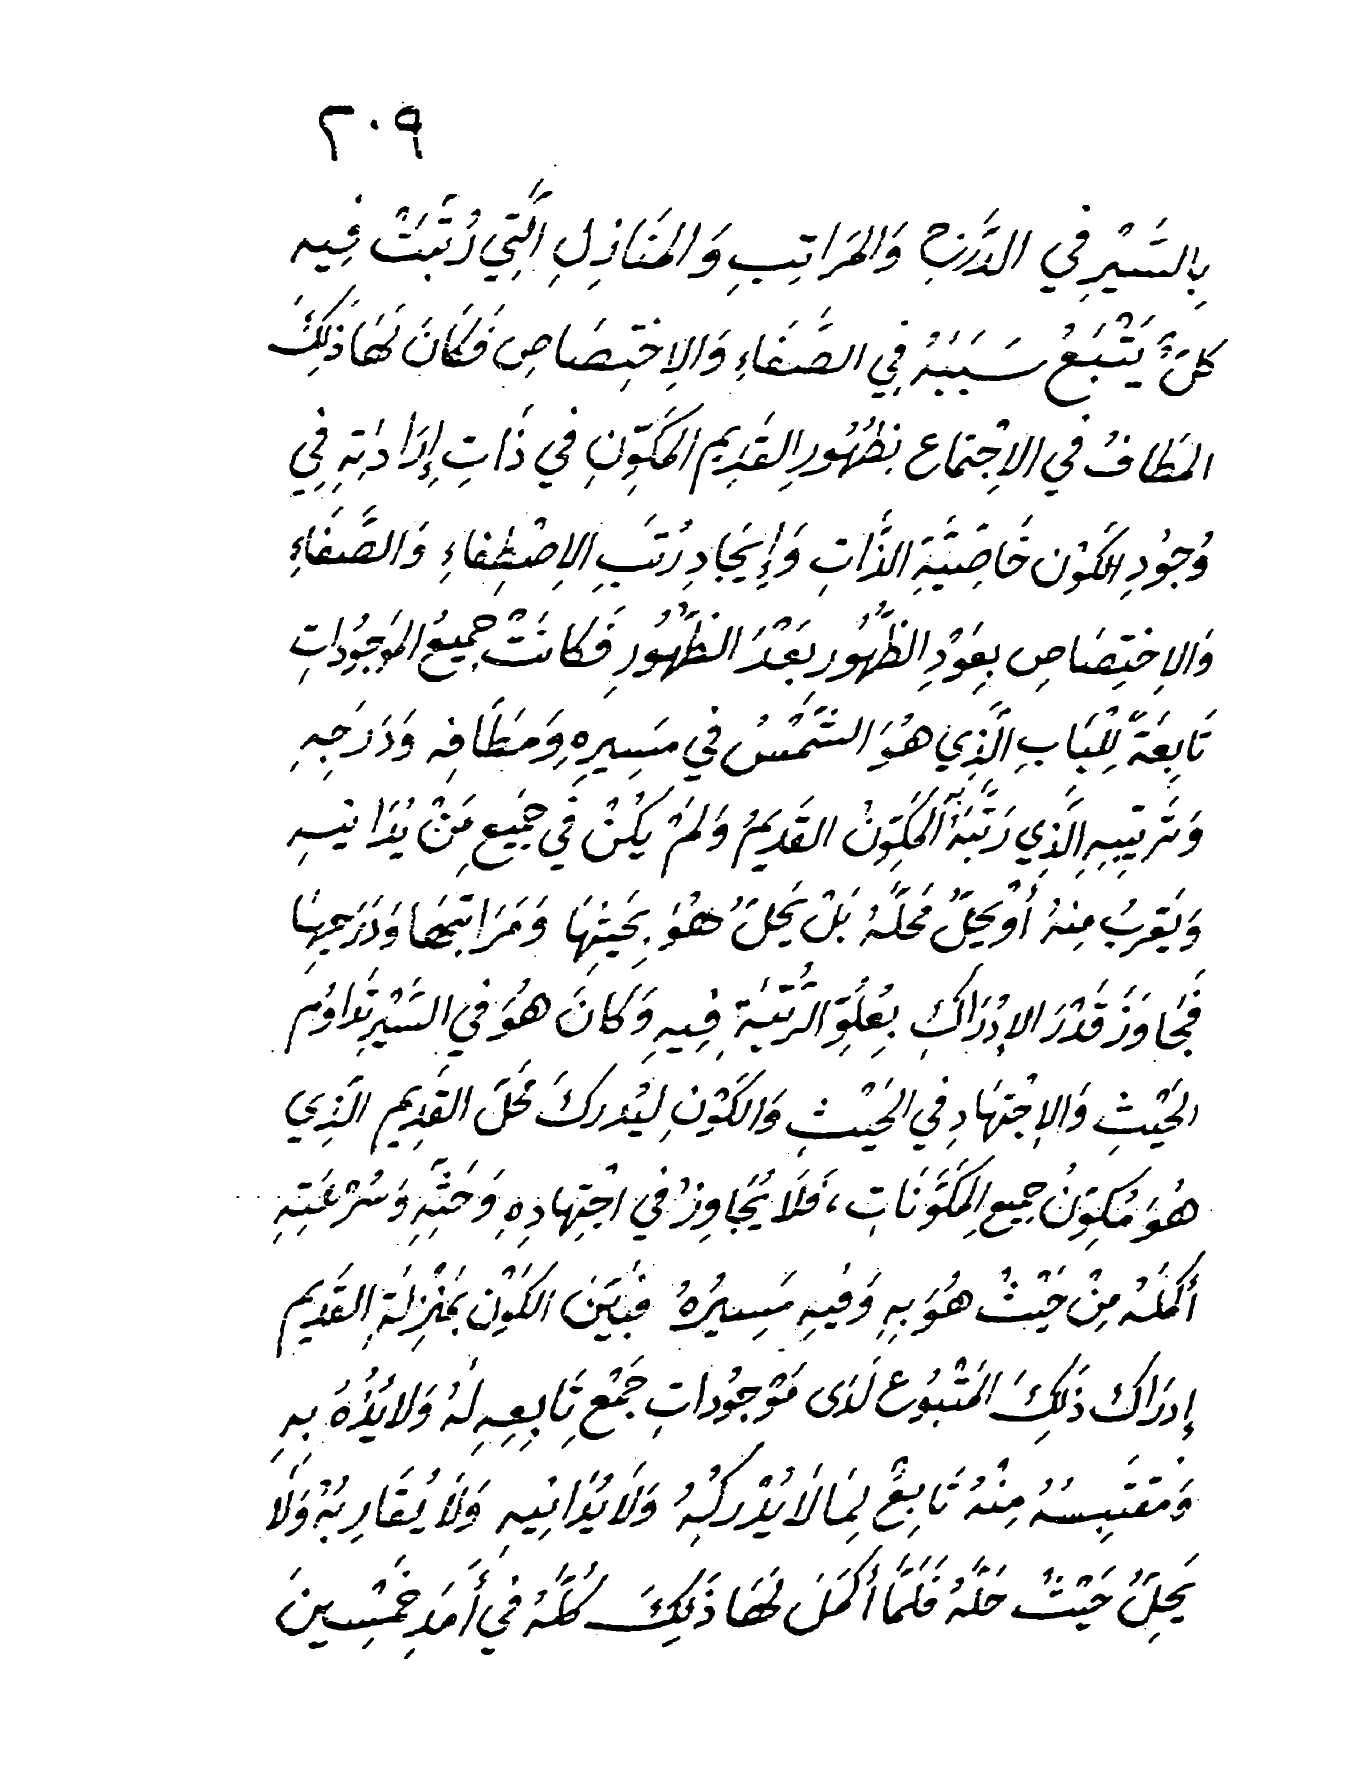 ٢٠٩
بِالسَّيْرِ فِي الدَّرَجِ وَالمَرَاتِبِ وَالمَنَازِلِ الَّتِي رُتِّبَتْ فِيهِ
كُلٌّ يَتْبَعُ سَبَبَهُ فِي الصَّفَاءِ وَالِاخْتِصَاصِ فَكَانَ لَهَا ذَلِكَ
المَطَافُ فِي الاِجْتِمَاعِ بِظُهُورِ القَدِيمِ المُكَوِّنِ فِي ذَاتِ إِرَادَتِهِ فِي
وُجُودِ الكَوْنِ خَاصِّيَّةِ الذَّاتِ وَإِيجَادِ رُتَبِ الاِصْطِفَاءِ وَالصَّفَاءِ
وَالاِخْتِصَاصِ بِعَوْدِ الظُّهُورِ بَعْدَ الظُّهُورِ فَكَانَتْ جَمِيعُ المَوْجُودَاتِ
تَابِعَةً لِلْبَابِ الَّذِي هُوَ الشَّمْسُ فِي مَسِيرِهِ وَمَطَافِهِ وَدَرَجِهِ
وَتَرْتِيبِهِ الَّذِي رَتَّبَهُ بِهِ المُكَوِّنُ القَدِيمُ وَلَمْ يَكُنْ فِي جَمِيعِ مَنْ يُدَانِيهِ
وَيَقْرُبُ مِنْهُ أَوْ يَحِلُّ مَحَلَّهُ بَلْ يَحِلُّ هُوَ بِحَيْثِهَا وَمَرَاتِبِهَا وَدَرَجِهَا
فَجَاوَزَ قَدْرَ الإِدْرَاكِ بِعُلُوِّ الرُّتْبَةِ فِيهِ وَكَانَ هُوَ فِي السَّيْرِ تَدَاوُمِ
الحَيْثِ وَالاِجْتِهَادِ فِي الحَيْثِ وَالكَوْنِ لِيُدْرِكَ مَحَلَّ القَدِيمِ الَّذِي
هُوَ مُكَوِّنُ جَمِيعِ المُكَوَّنَاتِ، فَلَا يُجَاوِزْ فِي اجْتِهَادِهِ وَحَثِّهِ وَسُرْعَتِهِ
أَكْمَلَهُ مِنْ حَيْثُ هُوَ بِهِ وَفِيهِ مَسِيرُهُ فَبَيَّنَ الكَوْنِ بِمَنْزِلَةِ القَدِيمِ
إِدْرَاكَ ذَلِكَ المَتْبُوعِ لَدَى مَوْجُودَاتِ جَمْعِ تَابِعِهِ لَهُ وَلَا يَؤُدُهُ بِهِ
وَمُقْتَبِسُهُ مِنْهُ تَابِعٌ لِمَا لَا يُدْرِكُهُ وَلَا يُدَانِيهِ وَلَا يُقَارِبُهُ وَلَا
يَحِلُّ حَيْثُ حَلَّهُ فَلَمَّا أَكْمَلَ لَهَا ذَلِكَ كُلَّهُ فِي أَمَدِ خَمْسِينَ